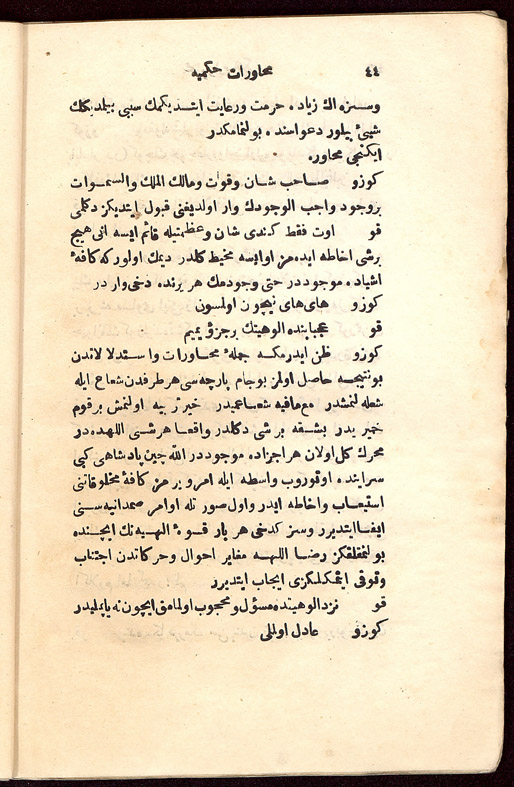 ٤٤ محاورات حكميه
وسزه اك زياده حرمت ورعايت ايتديكمك سببى بيلمديكك
شيئ بيلور دعواسنده بولنمامكدر
ايكنجى محاوره
كوزو صاحب شان وقوت ومالك الملك والسموات
بر وجود واجب الوجودك وار اولديغنى قبول ايتديكز دكلمى
قو اوت فقط كندى شان وعظمتيله قائم ايسه انى هيچ
برشى احاطه ايده مز اوايسه محيط كلدر ديمك اولور كه كافهٔ
اشياده موجوددر حتى وجودمك هر يرنده دخى وار در
كوزو هاى هاى نيچون اولمسون
قو عجبا بنده الوهيتك بر جزؤ يميم
كوزو ظن ايدرمكه جملهٔ محاورات واستدلالاتدن
بو نتيجه حاصل اولمز بوجام پارچه سى هر طرفدن شعاع ايله
شعله لنمشدر مع مافيه شعاعميدر خير تربيه اولنمش بر قوم
خمير يدر بشقه برشى دكلدر واقعا هر شى اللهده در
محرك كل اولان هر اجزاده موجوددر الله چين پادشاهى كبى
سراينده اوتوروب واسطه ايله امر ويرمز كافهٔ مخلوقاتنى
استيعاب واحاطه ايدر واول صورتله اوامر صمدانيه سنى
ايفا ايتديرر وسز كدخى هر بار قوهٔ الهيه نك ايچنده
بولنمقلقكز رضا اللهه مغاير احوال وحركاتدن اجتناب
وتوقى ايتمكلكزى ايجاب ايتديرر
قو نزد الوهيتده مسؤل ومحجوب اولمامق ايچون نه ياپمليدر
كوزو عادل اولملى